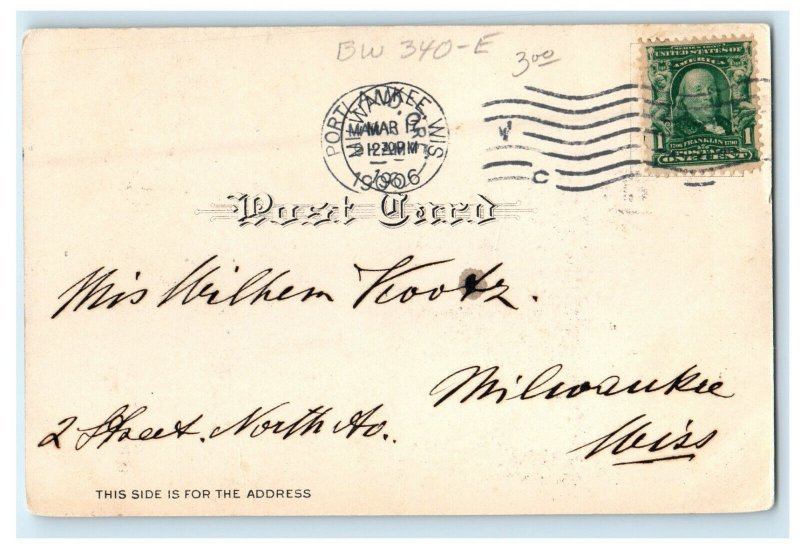 BW 340-E
3.00
SERIES 1902
UNITED STATES OF
AMERICA
1 1706 FRANKLIN 1790 1
POSTAGE
ONE CENT
PORTLAND, ORE.
MILWAUKEE, WIS.
MAR 17
1906
C
Post Card
Mis Wilhem Kootz.
Milwaukee
2 Street. North Av.
Wiss
THIS SIDE IS FOR THE ADDRESS